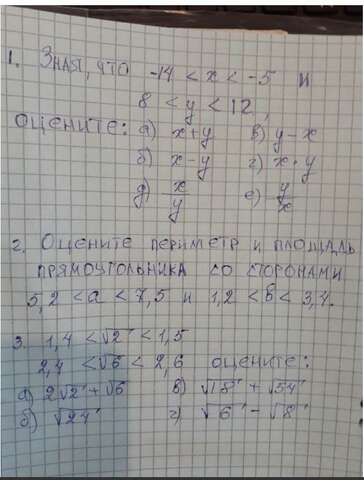 1. Зная, что -14 < x < -5 и
8 < y < 12,
оцените: а) x+y в) y-x
б) x-y г) x·y
д) x/y е) y/x
2. Оцените периметр и площадь
прямоугольника со сторонами
5,2 < a < 7,5 и 1,2 < b < 3,4.
3. 1,4 < √2 < 1,5
2,4 < √6 < 2,6 оцените:
а) 2√2 + √6 в) √18 + √54
б) √24 г) √6 - √8